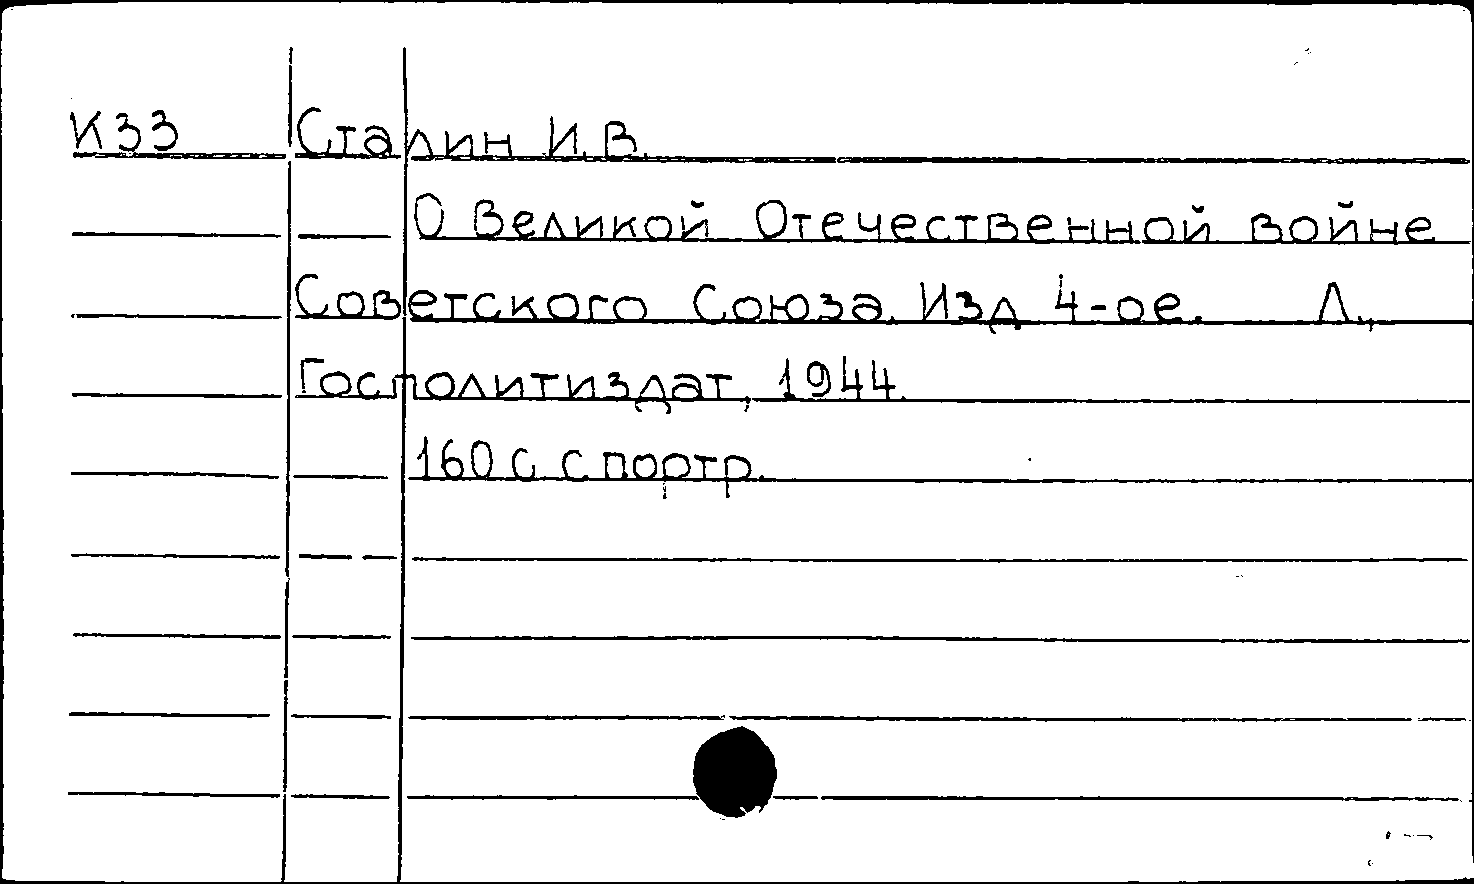 К33 Сталин И.В.
О Великой Отечественной войне
Советского Союза. Изд 4-ое. Л.,
Госполитиздат, 1944.
160 с. с портр.